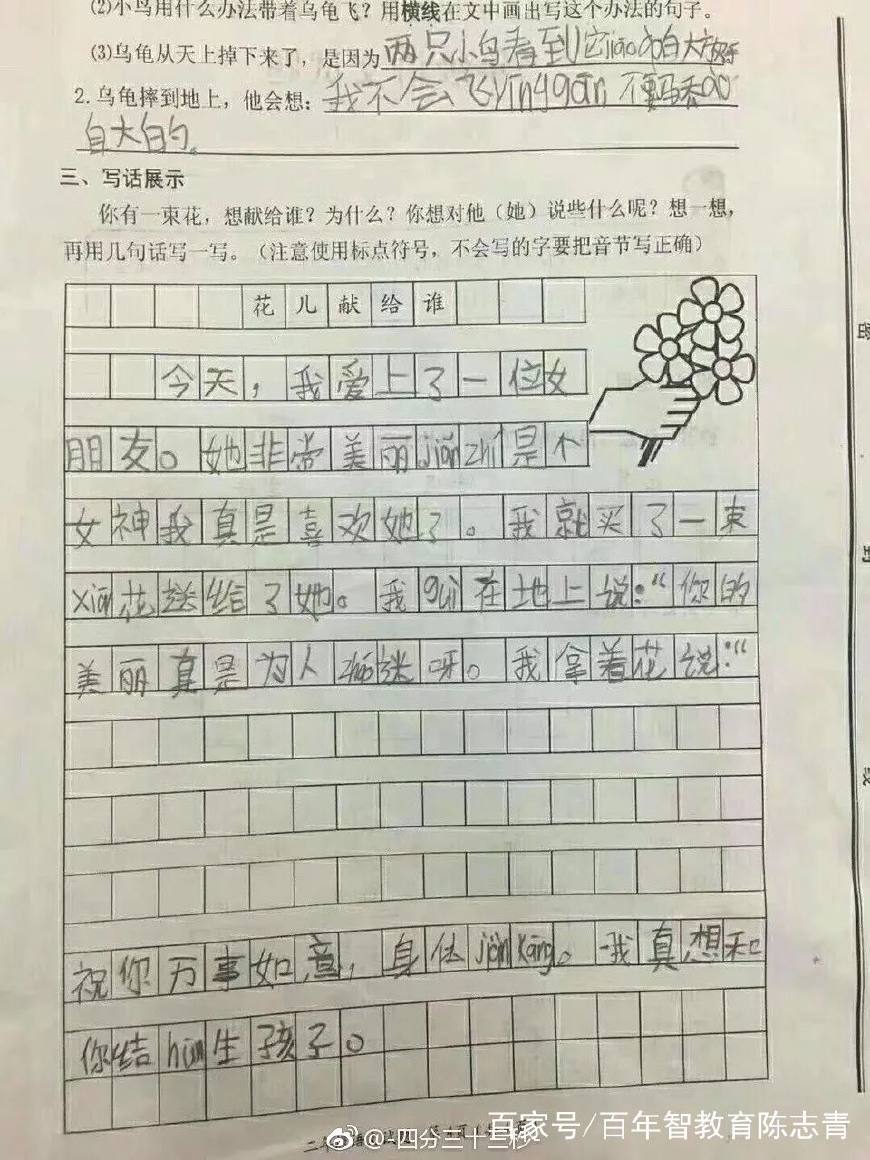 ⑵小鸟用什么办法带着乌龟飞?用横线在文中画出写这个办法的句子。
⑶乌龟从天上掉下来了,是因为两只小鸟看到它jiāo自大
2.乌龟摔到地上,他会想:我不会飞yīnggāi不要
自大的。
三、写话展示
你有一束花,想献给谁?为什么?你想对他(她)说些什么呢?想一想,
再用几句话写一写。(注意使用标点符号,不会写的字要把音节写正确)
花儿献给谁
今天,我爱上了一位女
朋友。她非常美丽jiǎn zhí是个
女神我真是喜欢她了。我就买了一束
xiān花送给了她。我guì在地上说:“你的
美丽真是为人zháo迷呀。我拿着花说:“
祝你万事如意,身体jiàn kāng。我真想和
你结hūn生孩子。
密
封
线
@四分三十三秒
百家号/百年智教育陈志青